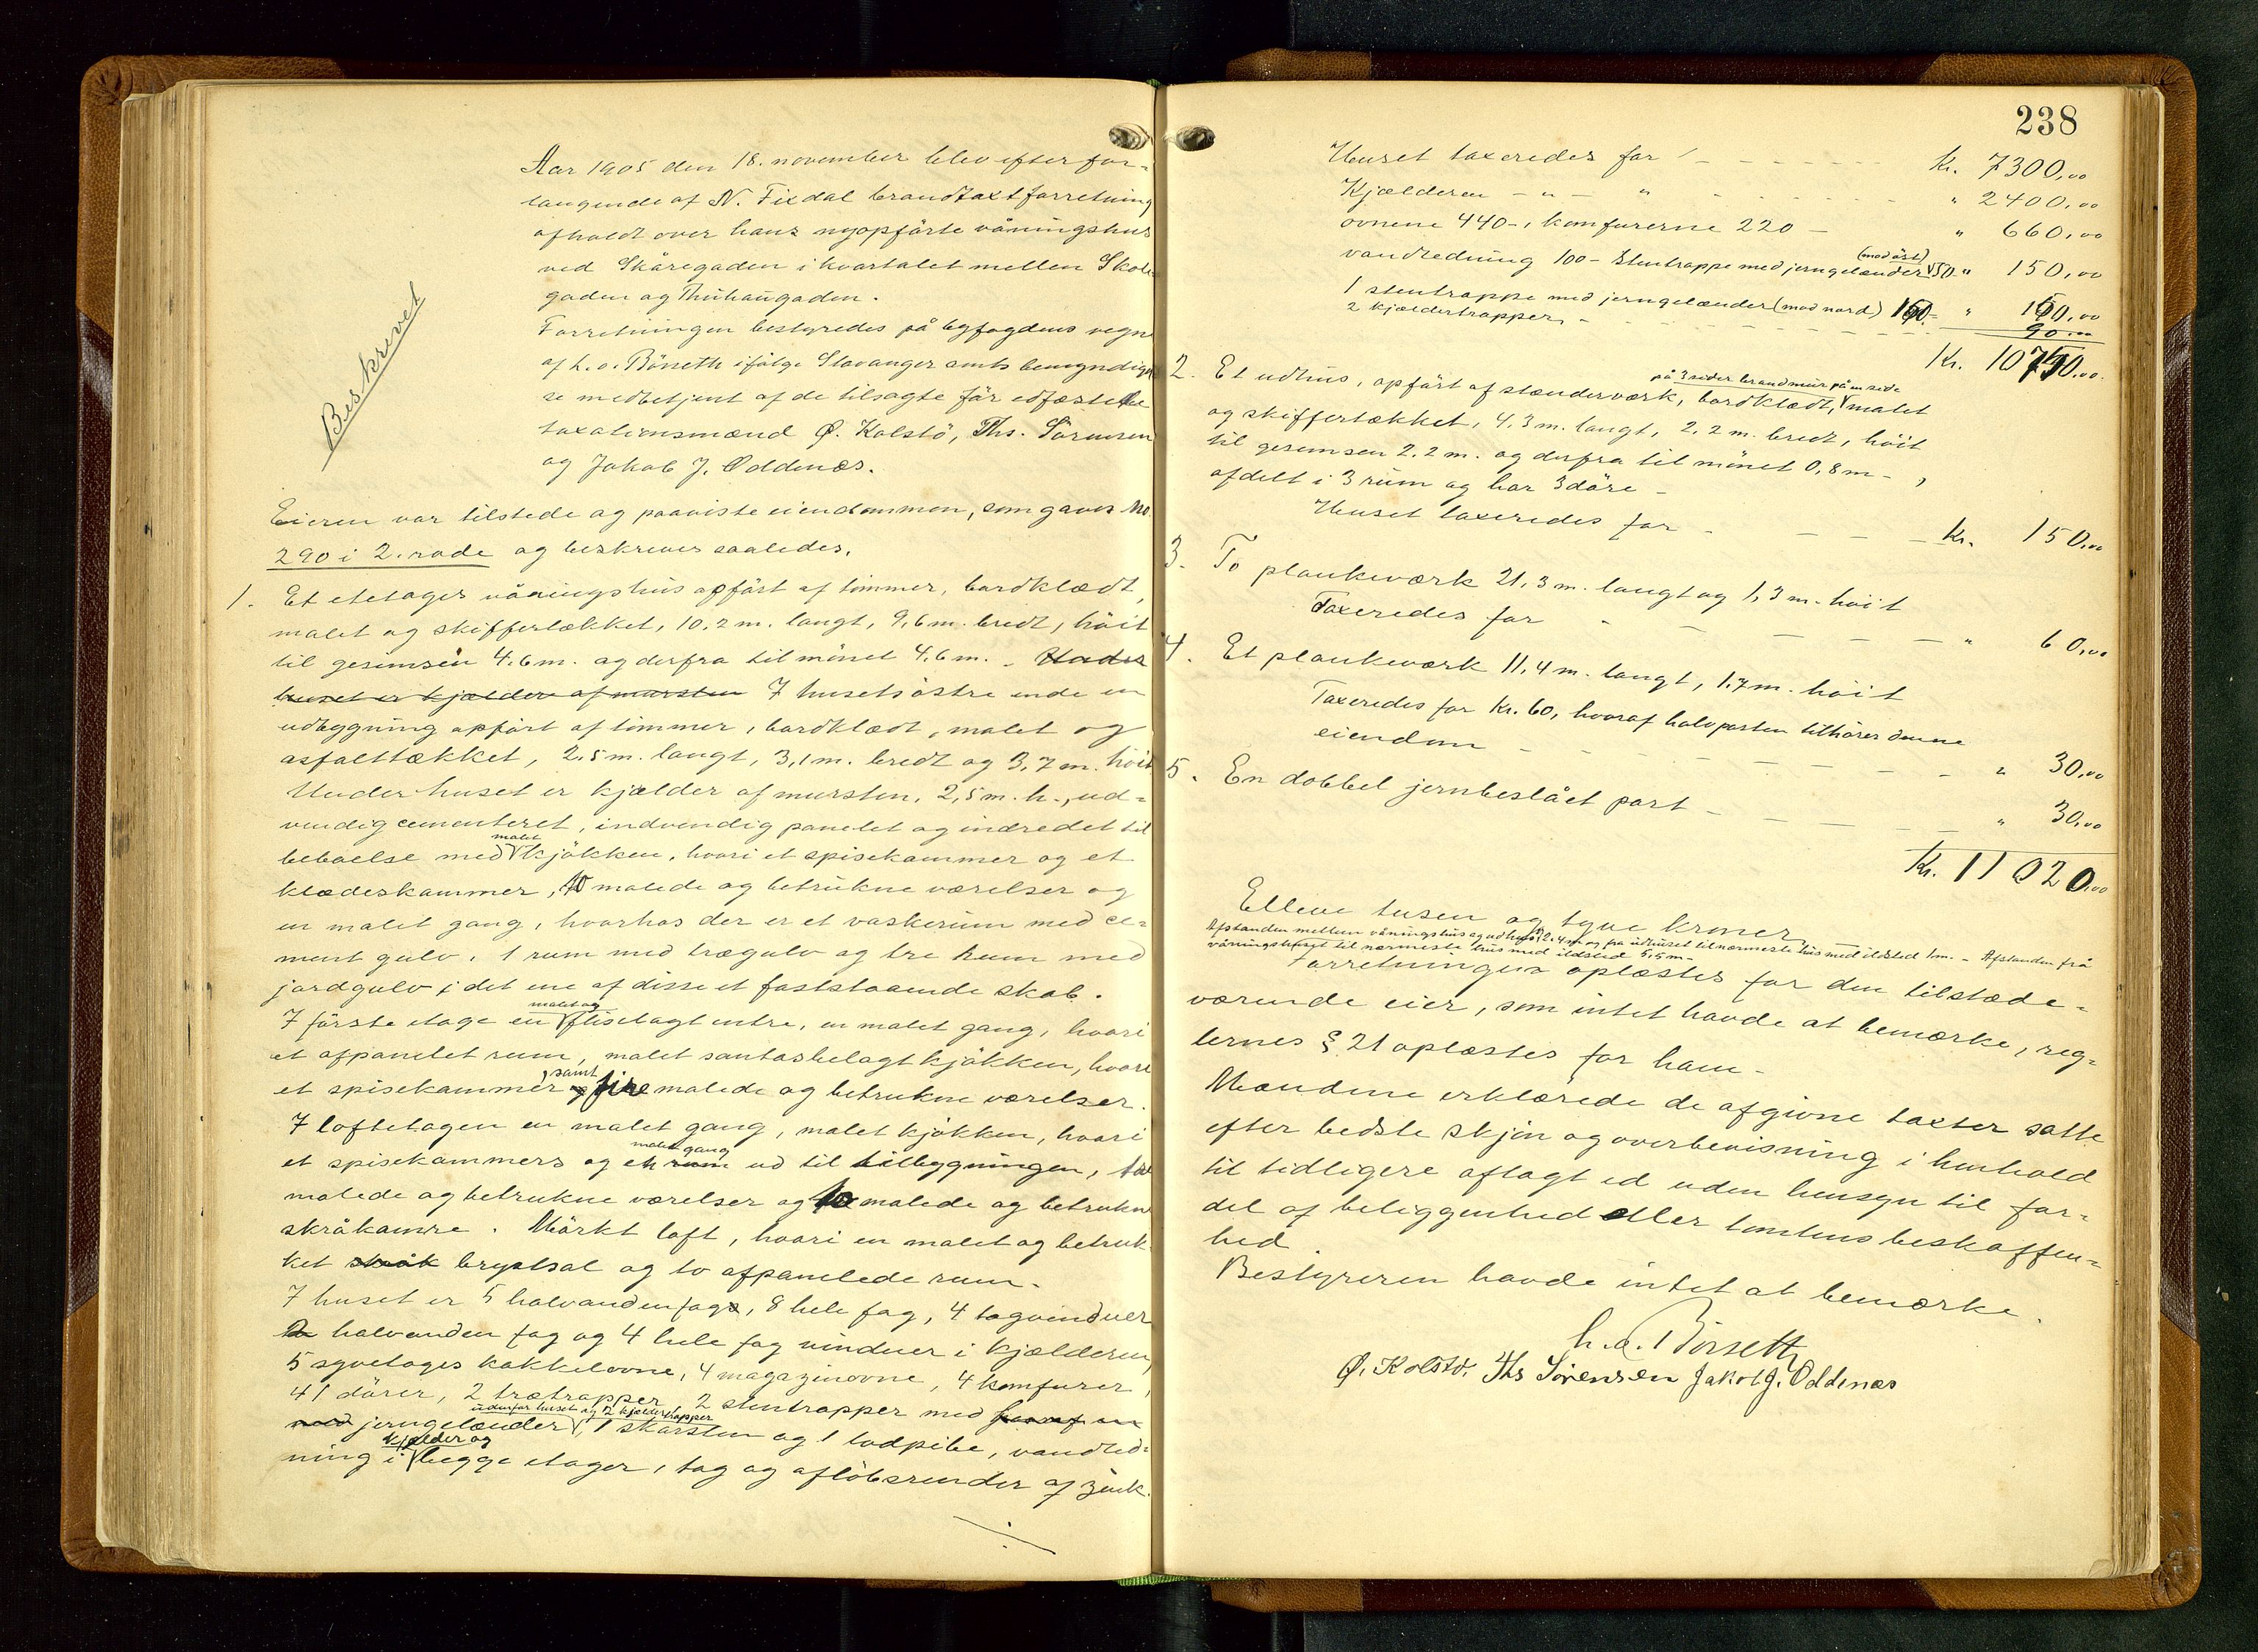 Beskrevet
Aar 1905 den 18. november blev efter for-
langende af N. Fixdal brandtaxtforretning
afholdt over hans nyopførte våningshus
ved Skåregaden i kvartalet mellem Skole-
gaden og Thuhaugaden.
Forretningen bestyredes på byfogdens vegne
af h. a. Börseth ifølge Stavanger amts bemyndigel
se medbetjent af de tilsagte før edfæstede
taxationsmænd Ø. Kolstö, Ths. Sörensen
og Jakob J. Oddenæs.
Eieren var tilstede og paaviste eiendommen, som gaves No.
290 i 2. rode og beskreves saaledes.
1. Et etetages våningshus opført af tømmer, bordklædt,
malet og skiffertækket, 10,2 m. langt, 9,6 m. bredt, höit
til gesimsen 4,6 m. og derfra til mönet 4,6 m. - Under
huset er kjælder af mursten I husets östre ende en
udbygning opfört af tömmer, bordklædt, malet og
asfalttækket, 2,5 m. langt, 3,1 m. bredt og 3,7 m. höit
Under huset er kjælder af mursten, 2,5 m. h., ud-
vendig cementeret, indvendig panelet og indredet til
malet
beboelse med kjökken, hvori et spisekammer og et
klædeskammer, to malede og betrukne værelser og
en malet gang, hvorhos der er et vaskerum med ce-
ment gulv, 1 rum med trægulv og tre rum med
jordgulv i det ene af disse et faststaaende skab.
malet og
I förste etage en fliselagt entre, en malet gang, hvori
et afpanelet rum, malet santasbelagt kjökken, hvori
, samt
et spisekammer og fire malede og betrukne værelser.
I loftetagen en malet gang, malet kjökken, hvori
malet gang
et spisekammers og et rum ud til tilbygningen, tre
malede og betrukne værelser og to malede og betrukne
skråkamre. Mörkt loft, hvori en malet og betruk-
ket skråk brystsal og to afpanelede rum.
I huset er 5 halvandenfags, 8 hele fag, 4 tagvinduer
2 halvanden fag og 4 hele fag vinduer i kjælderen,
5 syvetages kakkelovne, 4 magazinovne, 4 komfurer,
41 dörer, 2 trætrapper, 2 stentrapper med
udenfor huset og 2 kjældertrapper
med jerngelænder, 1 skorsten og 1 lodpibe, vandled-
kjælder og
ning i begge etager, tag og aflöbsrender af zink.
238
Huset taxeredes for Kr. 7300,00
Kjælderen - " - " " 2400,00
ovnene 440-, komfurerne 220 - " 660,00
(mod öst)
vandledning 100 - Stentrappe med jerngelænder 50 " 150,00
1 stentrappe med jerngelænder (mod nord) 150.- " 150,00
2 kjældertrapper - 90,00
Kr. 10750,00.
på 3 sider brandmur på en side
2. Et udhus, opfört af stænderværk, bordklædt, malet
og skiffertækket, 4,3 m. langt, 2,2 m. bredt, höit
til gesimsen 2,2 m. og derfra til mönet 0,8 m -,
afdelt i 3 rum og har 3 döre -
Huset taxeredes for - Kr. 150,00
3. To plankeværk 21,3 m. langt og 1,3 m. höit
Taxeredes for - " 60,00
4. Et plankeværk 11,4 m. langt, 1,7 m. höit
Taxeredes for Kr. 60, hvoraf halvparten tilhörer denne
eiendom - " 30,00
5. En dobbel jernbeslået port - " 30,00
Kr. 11 020,00
Elleve tusen og tyve kroner. —
Afstanden mellem våningshus og udhus 2,4 m og fra udhuset til nærmeste hus med ildsted 1 m. - Afstanden frå
våningshuset til nærmeste hus med ildsted 5,5 m -
Forretningen oplæstes for den tilstæde-
værende eier, som intet havde at bemærke, reg-
lernes § 21 oplæstes for ham -
Mændene erklærede de afgivne taxter satte
efter bedste skjön og overbevisning i henhold
til tidligere aflagt ed uden hensyn til for-
del af beliggenhed eller tomtens beskaffen-
hed.
Bestyreren havde intet at bemærke.
h. a. Börseth
Ø. Kolstø. Ths Sörensen Jakob J. Oddenæs